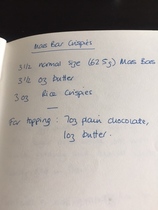 Mars Bar Crispies
3 1/2 normal size (62.5g) Mars Bars
3 1/2 oz butter
3 oz Rice Crispies
For topping : 7oz plain chocolate,
1oz butter.